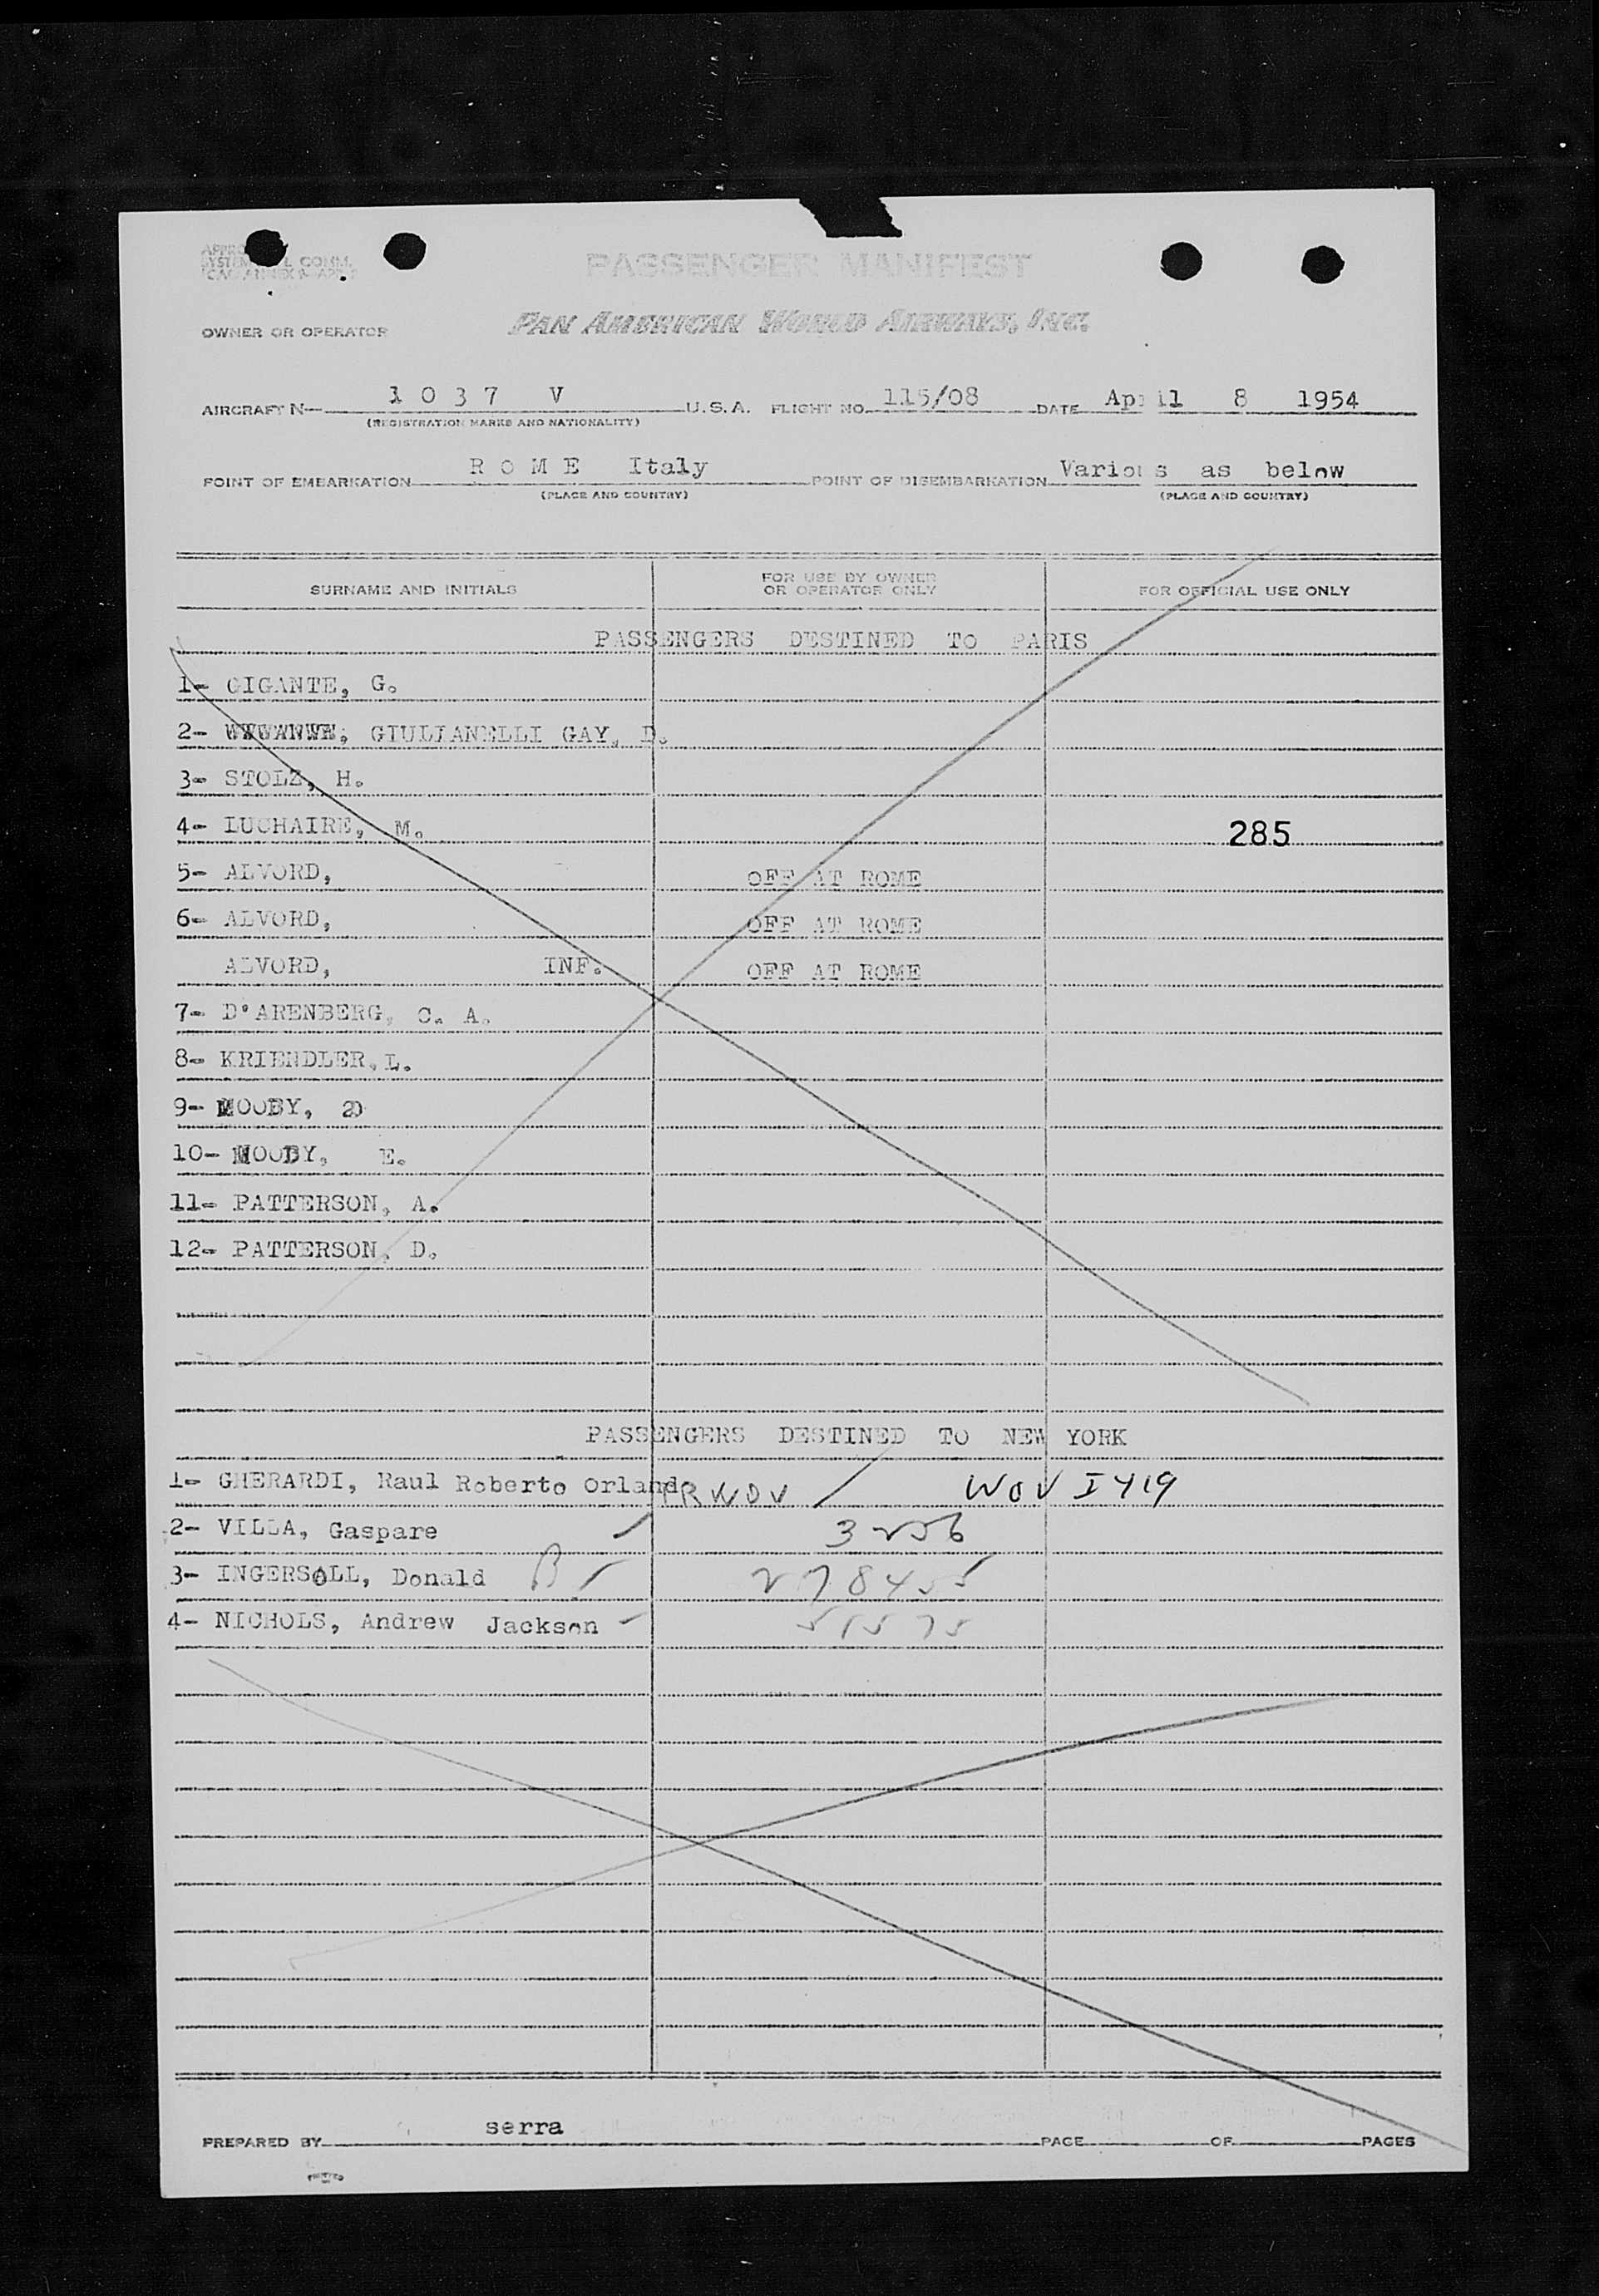 PASSENGER MANIFEST
OWNER OR OPERATOR PAN AMERICAN WORLD AIRWAYS, INC.
AIRCRAFT N 1 0 3 7 V U.S.A. FLIGHT NO. 115/08 DATE April 8 1954
(REGISTRATION MARKS AND NATIONALITY)
POINT OF EMBARKATION R O M E Italy POINT OF DISEMBARKATION Various as below
(PLACE AND COUNTRY) (PLACE AND COUNTRY)
SURNAME AND INITIALS FOR USE BY OWNER OR OPERATOR ONLY FOR OFFICIAL USE ONLY
PASSENGERS DESTINED TO PARIS
1- GIGANTE, G.
2- GIULIANELLI GAY, D.
3- STOLZ, H.
4- LUCHAIRE, M. 285
5- ALVORD, OFF AT ROME
6- ALVORD, OFF AT ROME
ALVORD, INF. OFF AT ROME
7- D'ARENBERG, C. A.
8- KRIENDLER, L.
9-
10- E.
11- PATTERSON, A.
12- PATTERSON, D.
PASSENGERS DESTINED TO NEW YORK
1- GHERARDI, Raul Roberto Orlando
2- VILLA, Gaspare 3256
3- INGERSOLL, Donald B 278455
4- NICHOLS, Andrew Jackson 51575
PREPARED BY serra PAGE OF PAGES